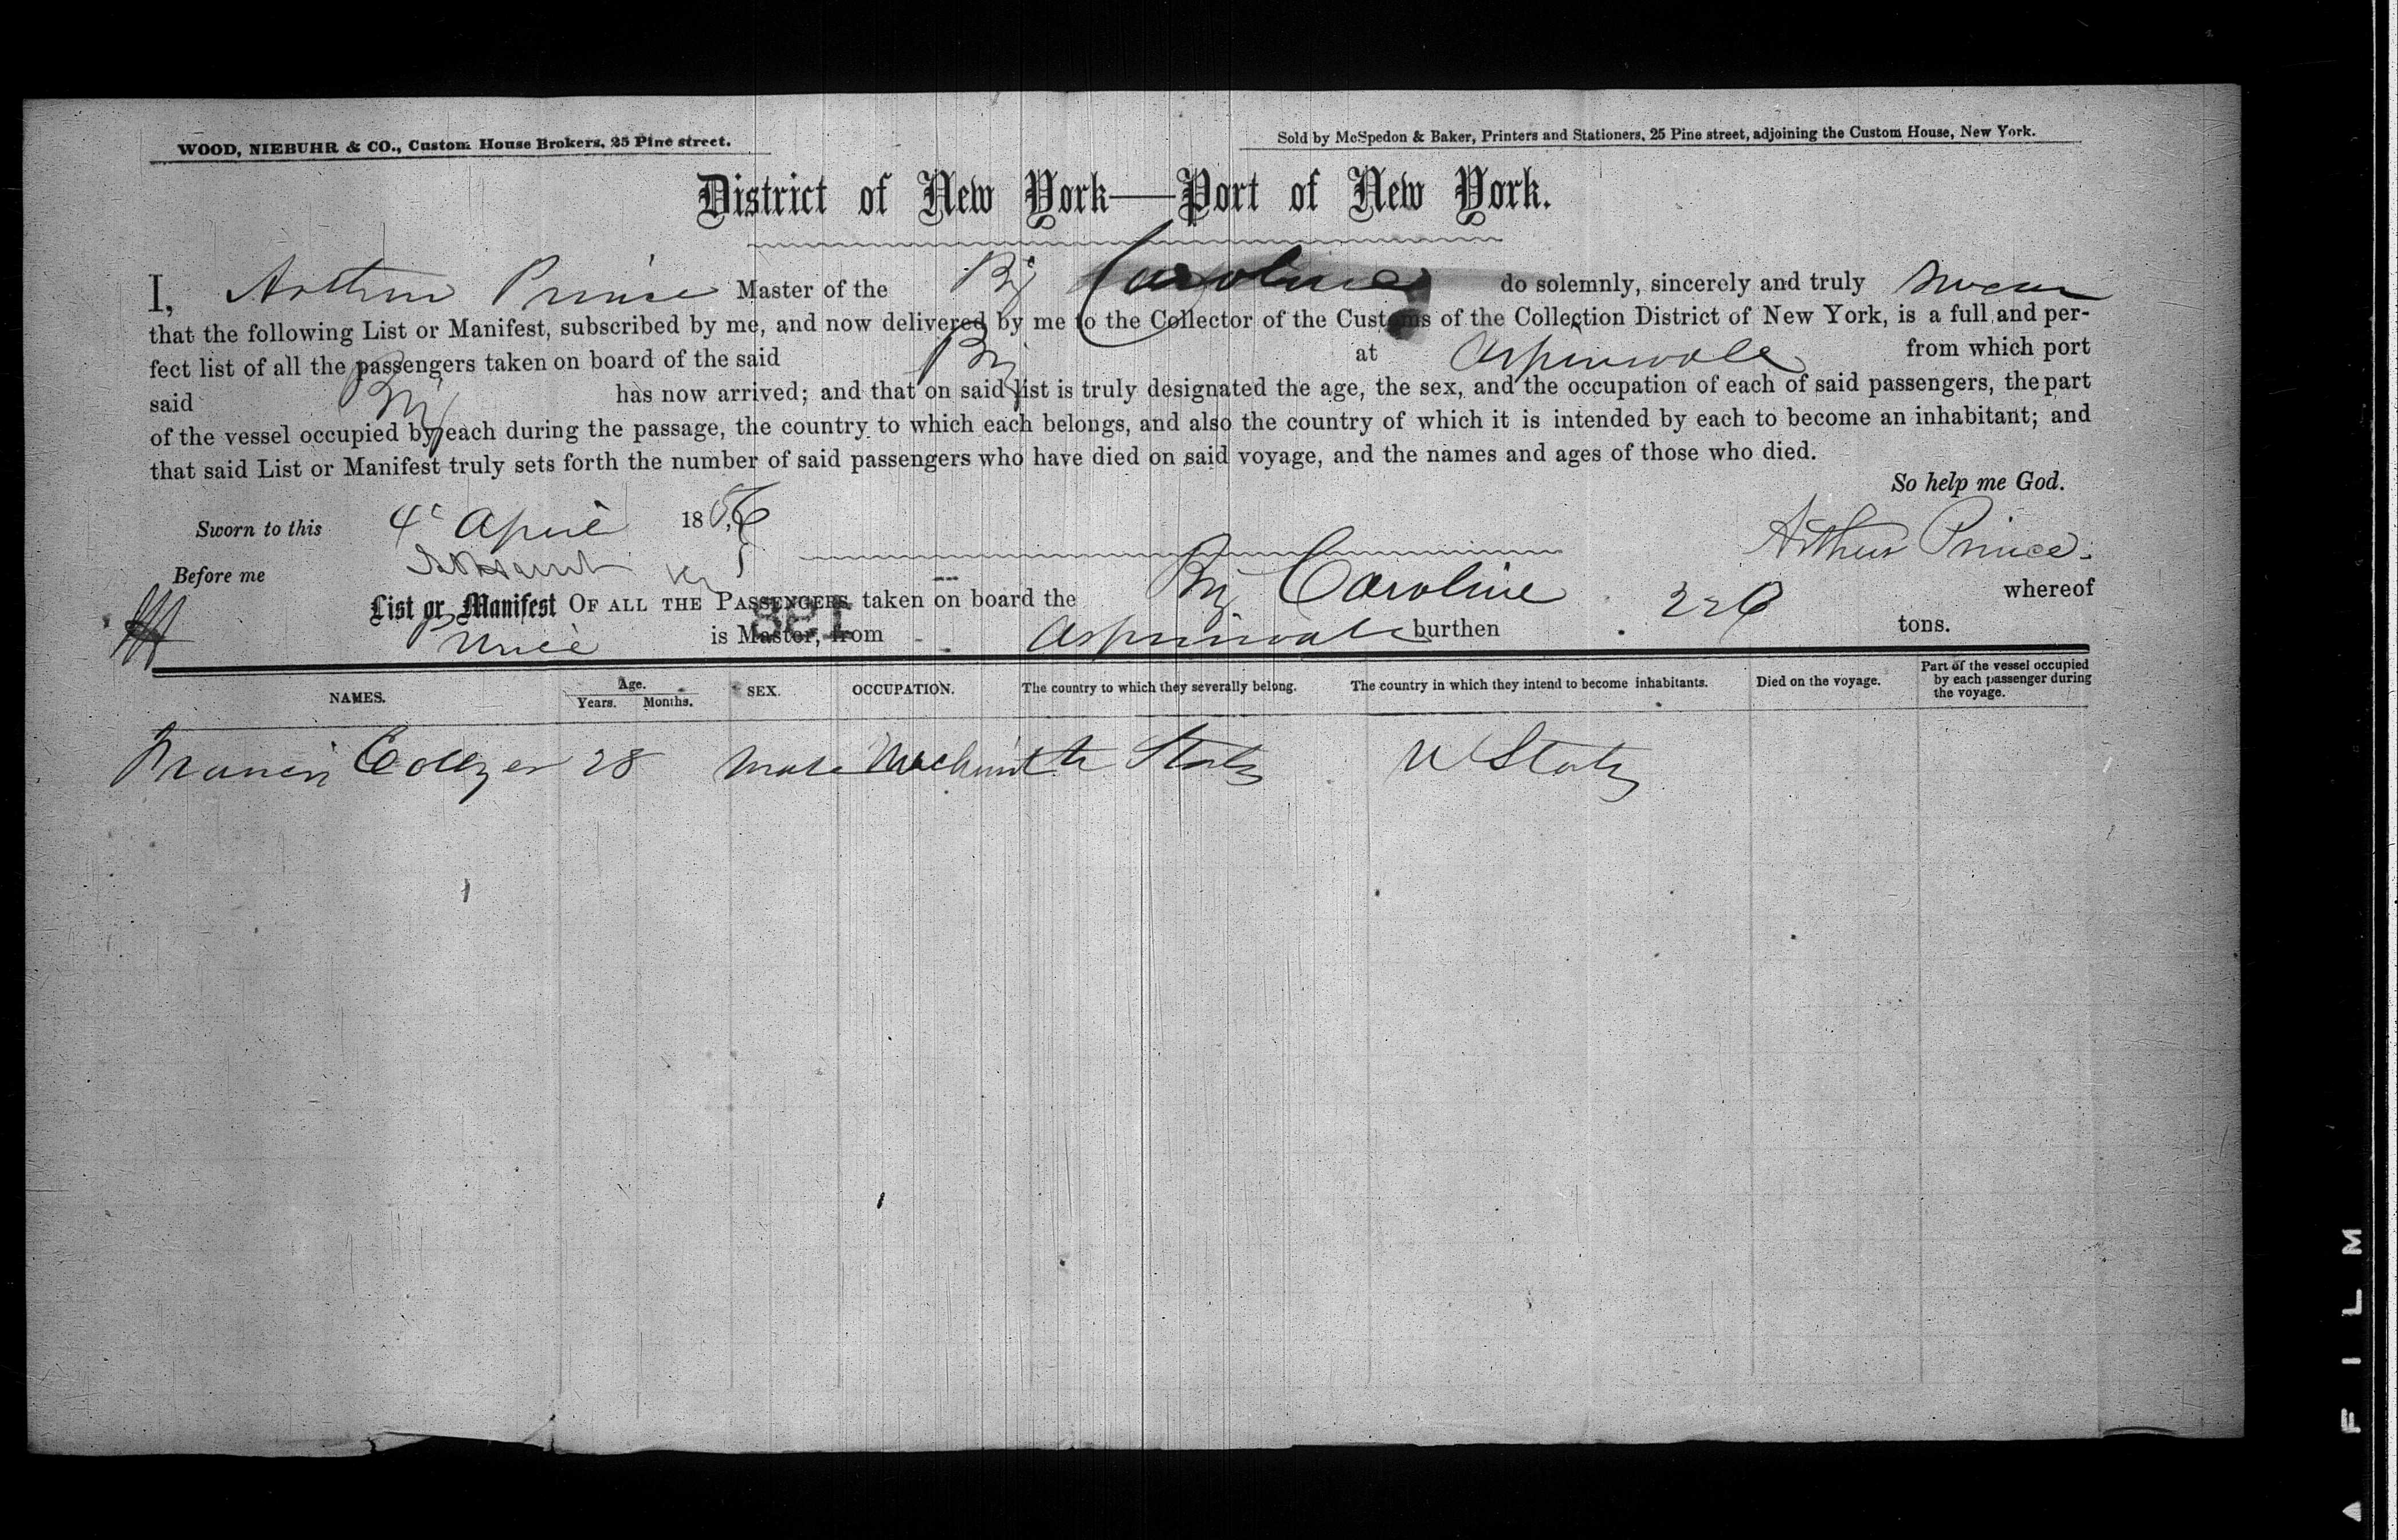 WOOD, NIEBUHR & CO., Custom House Brokers, 25 Pine street.
Sold by McSpedon & Baker, Printers and Stationers, 25 Pine street, adjoining the Custom House, New York.
District of New York—Port of New York.
I, Arthur Prince Master of the Brig Caroline do solemnly, sincerely and truly swear
that the following List or Manifest, subscribed by me, and now delivered by me to the Collector of the Customs of the Collection District of New York, is a full and per-
fect list of all the passengers taken on board of the said Brig at Aspinwall from which port
said Brig has now arrived; and that on said list is truly designated the age, the sex, and the occupation of each of said passengers, the part
of the vessel occupied by each during the passage, the country to which each belongs, and also the country of which it is intended by each to become an inhabitant; and
that said List or Manifest truly sets forth the number of said passengers who have died on said voyage, and the names and ages of those who died.
So help me God.
Sworn to this 4 April 1856
Arthur Prince
Before me
List or Manifest OF ALL THE PASSENGERS taken on board the Brig Caroline whereof
Prince is Master, from Aspinwall burthen 226 tons.
NAMES. Age. Years. Months. SEX. OCCUPATION. The country to which they severally belong. The country in which they intend to become inhabitants. Died on the voyage. Part of the vessel occupied by each passenger during the voyage.
Francis 28 Male U States
FILM